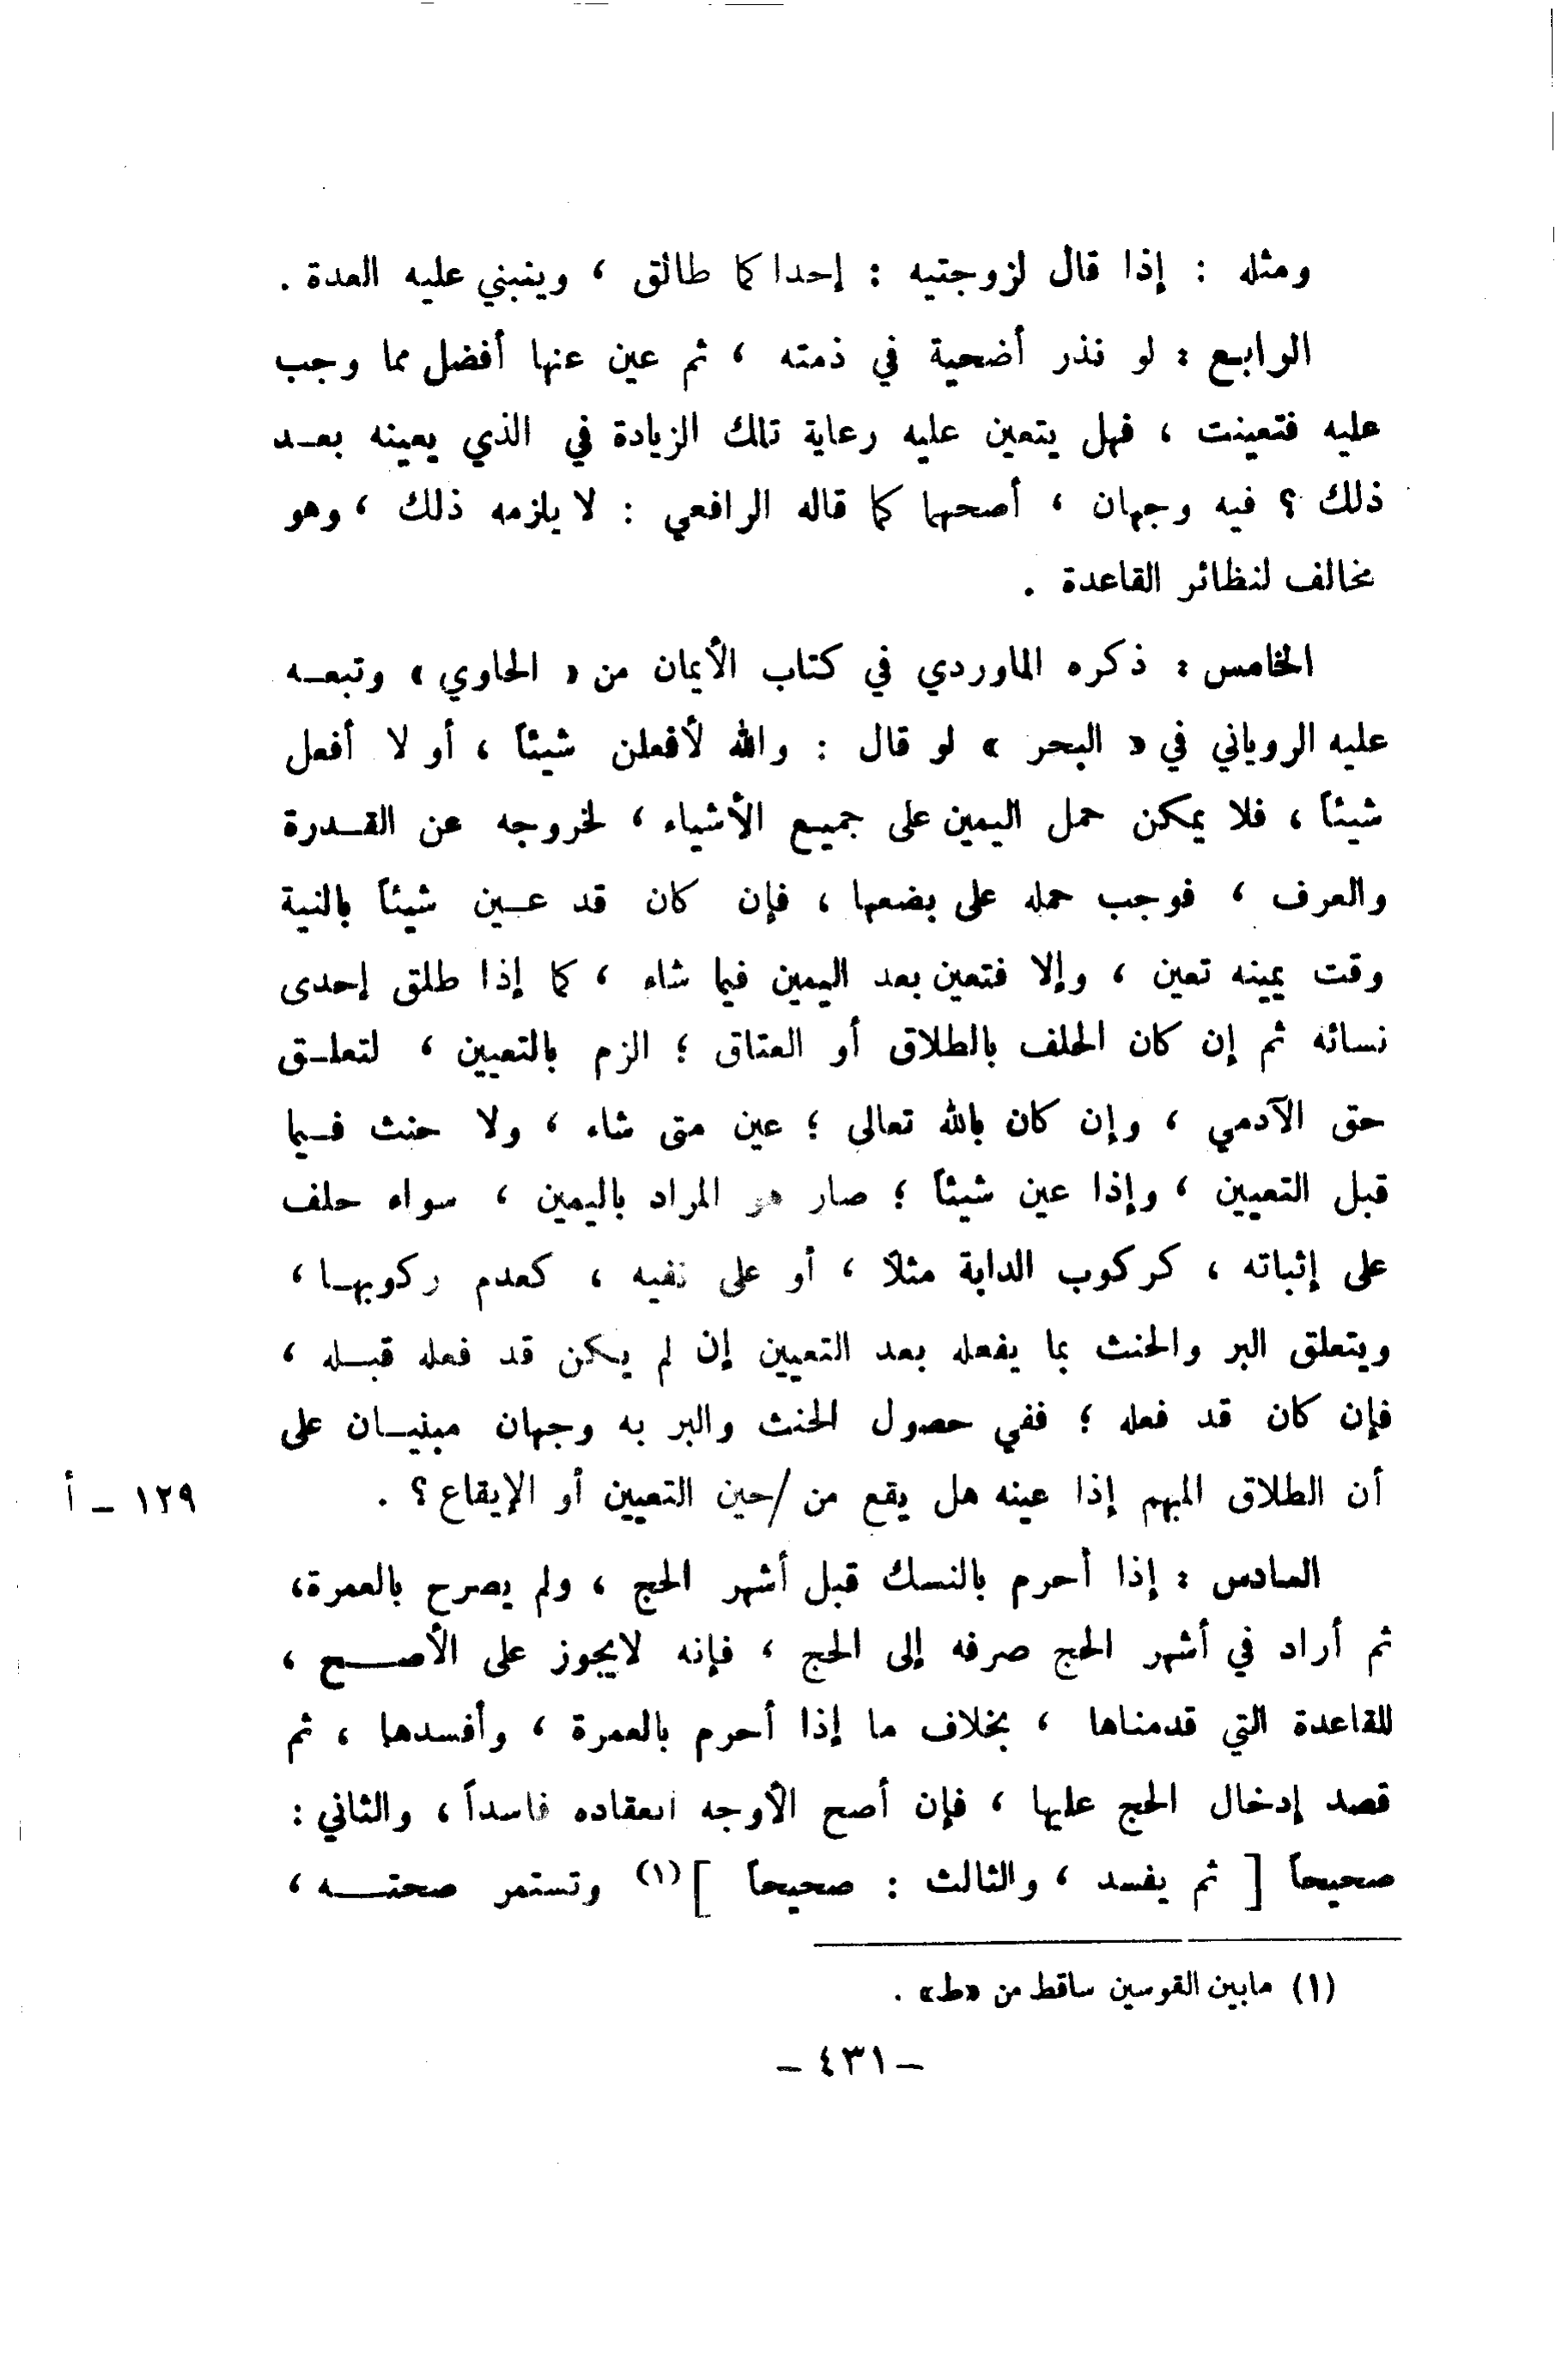 ومثله : إذا قال لزوجتيه : إحداكما طالق ، وينبني عليه العدة .
الرابع : لو نذر أضحية في ذمته ، ثم عين عنها أفضل مما وجب
عليه فتعينت ، فهل يتعين عليه رعاية تلك الزيادة في الذي يعينه بعد
ذلك ؟ فيه وجهان ، أصحهما كما قاله الرافعي : لا يلزمه ذلك ، وهو
مخالف لنظائر القاعدة .
الخامس : ذكره الماوردي في كتاب الأيمان من « الحاوي » وتبعه
عليه الروياني في « البحر » لو قال : والله لأفعلن شيئاً ، أو لا أفعل
شيئاً ، فلا يمكن حمل اليمين على جميع الأشياء ، لخروجه عن القدرة
والعرف ، فوجب حمله على بضعها ، فإن كان قد عين شيئاً بالنية
وقت يمينه تعين ، وإلا فتعين بعد اليمين فيما شاء ، كما إذا طلق إحدى
نسائه ثم إن كان الحلف بالطلاق أو العتاق ؛ الزم بالتعيين ، لتعلق
حق الآدمي ، وإن كان بالله تعالى ؛ عين متى شاء ، ولا حنث فيما
قبل التعيين ، وإذا عين شيئاً ؛ صار هو المراد باليمين ، سواء حلف
على إثباته ، كركوب الدابة مثلاً ، أو على نفيه ، كعدم ركوبها ،
ويتعلق البر والحنث بما يفعله بعد التعيين إن لم يكن قد فعله قبله ،
فإن كان قد فعله ؛ ففي حصول الحنث والبر به وجهان مبنيان على
أن الطلاق المبهم إذا عينه هل يقع من /حين التعيين أو الإيقاع ؟ . ١٢٩ - أ
السادس : إذا أحرم بالنسك قبل أشهر الحج ، ولم يصرح بالعمرة،
ثم أراد في أشهر الحج صرفه إلى الحج ، فإنه لايجوز على الأصح ،
للقاعدة التي قدمناها ، بخلاف ما إذا أحرم بالعمرة ، وأفسدها ، ثم
قصد إدخال الحج عليها ، فإن أصح الأوجه انعقاده فاسداً ، والثاني :
صحيحاً [ ثم يفسد ، والثالث : صحيحاً ](١) وتستمر صحته ،
(١) مابين القوسين ساقط من «ط» .
- ٤٣١ -